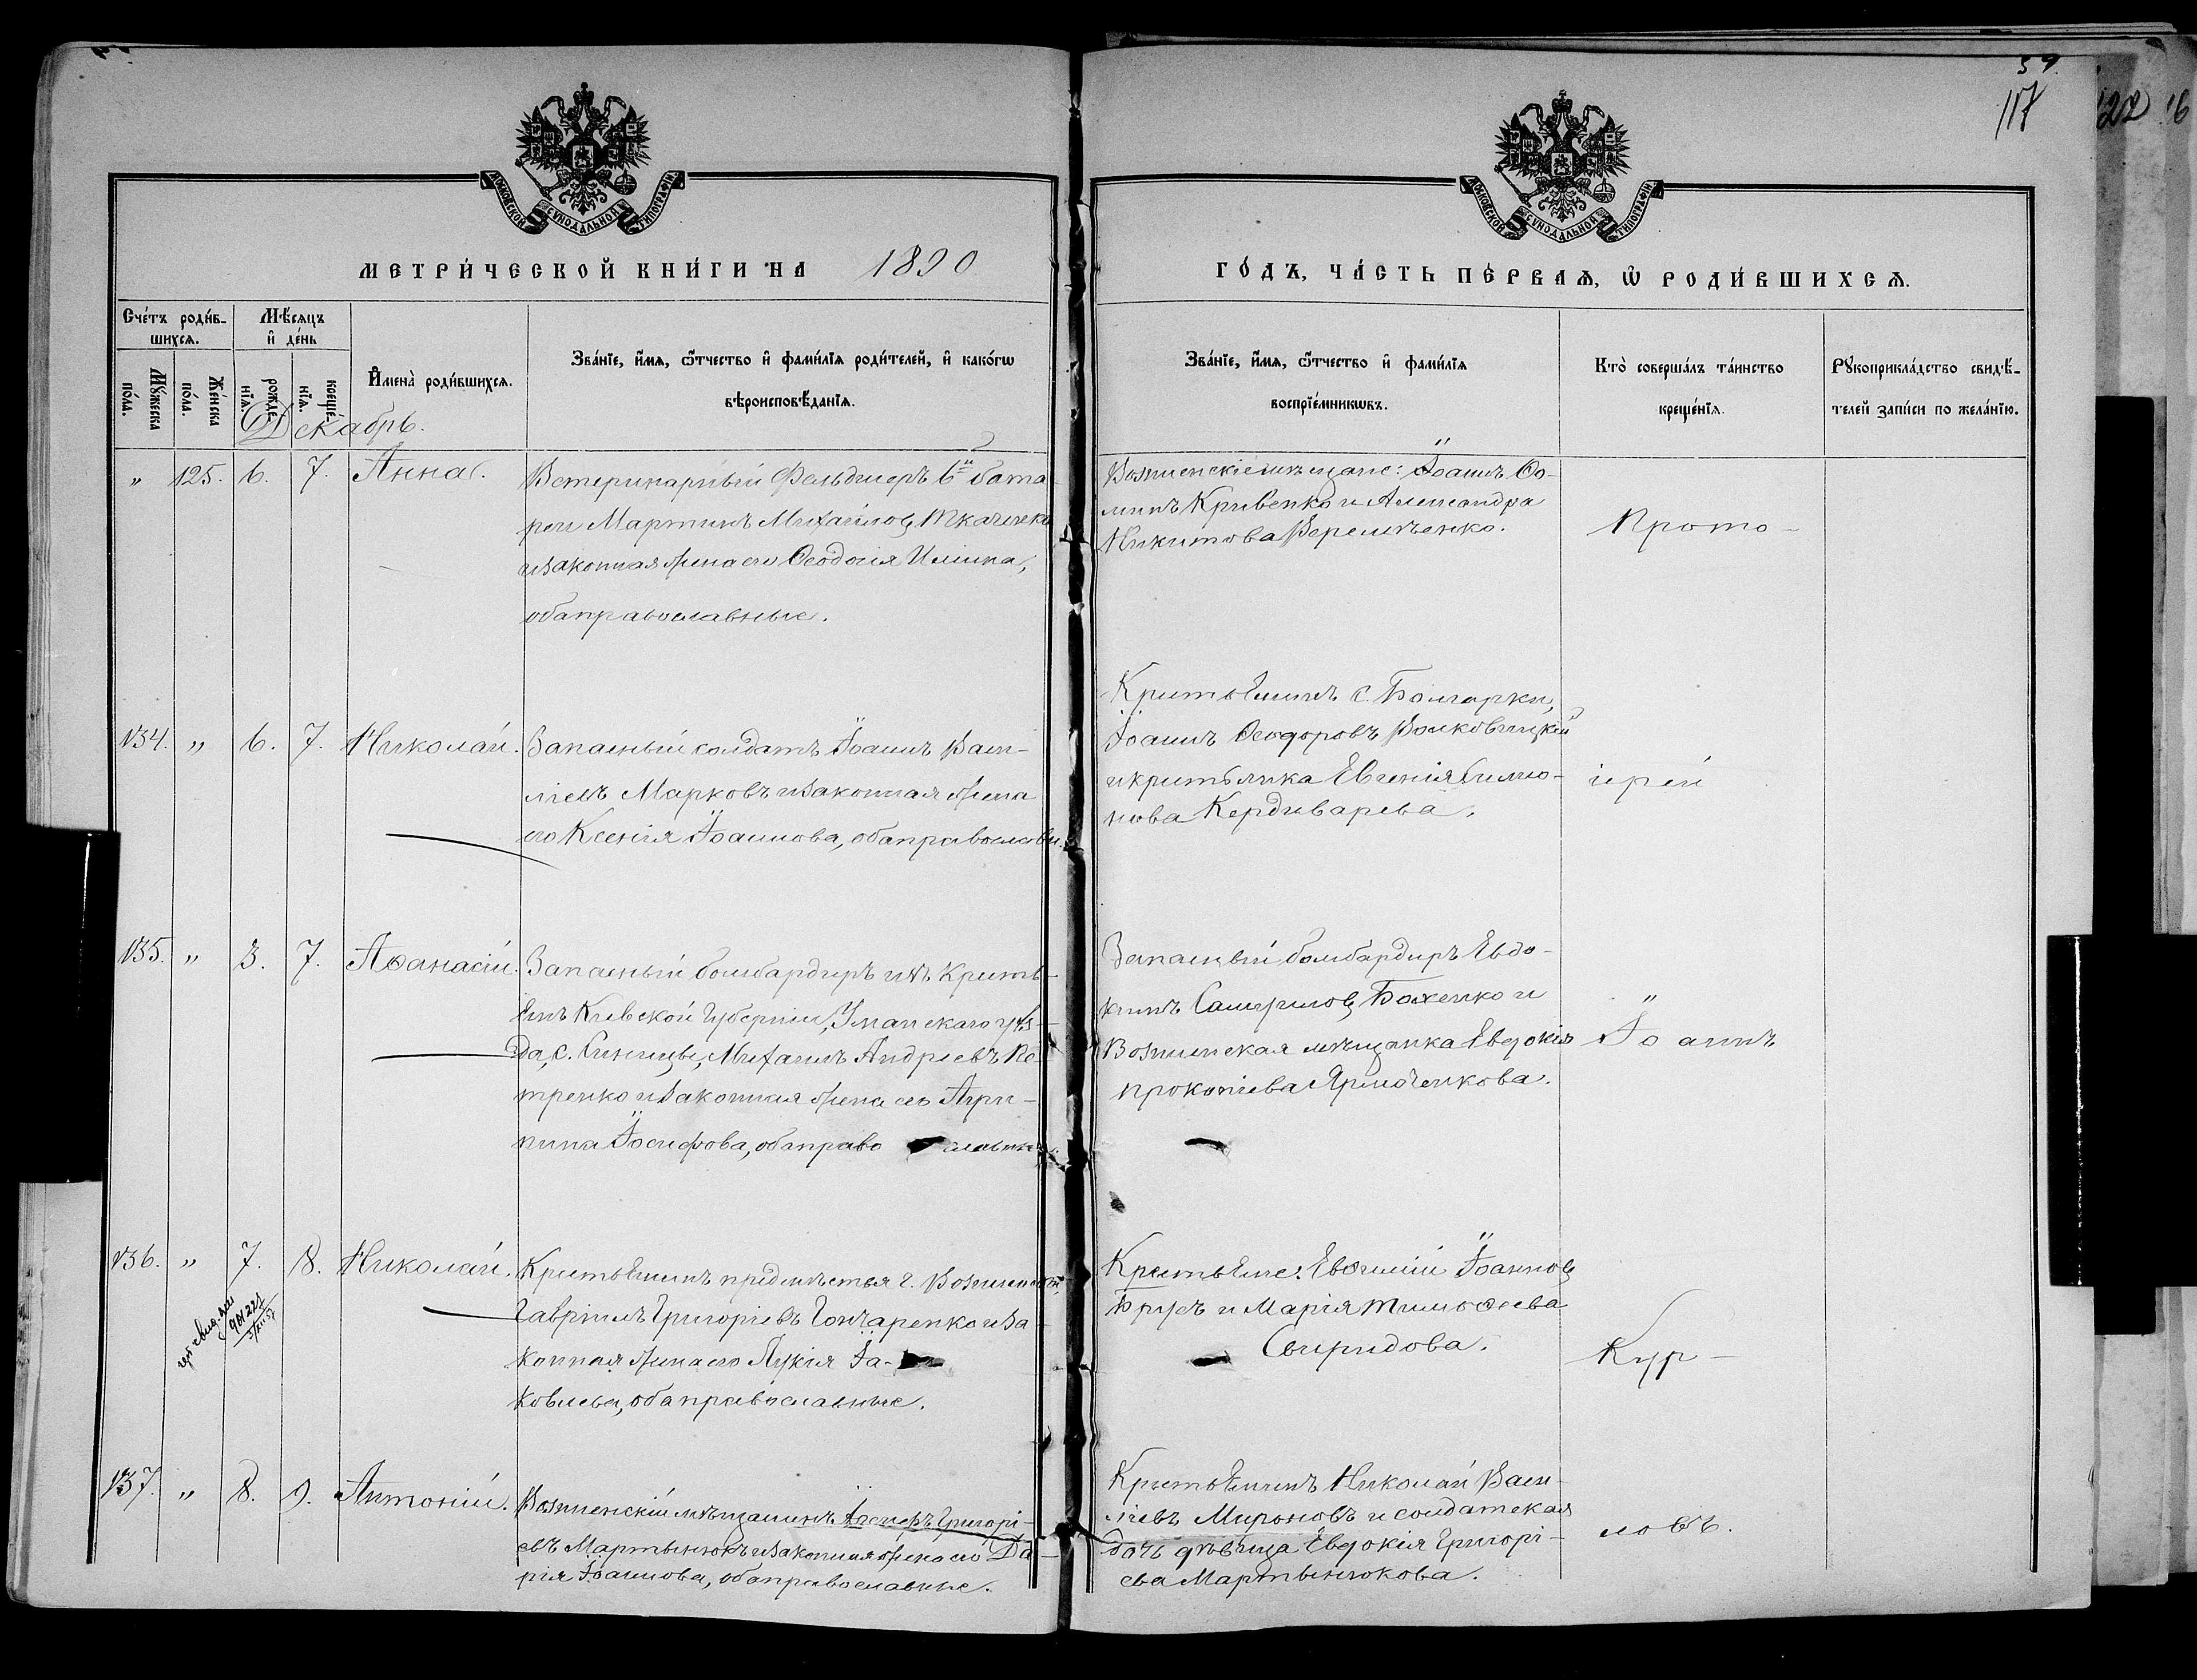 59.
117
122
16
МОСКОВСКОЙ СѴНОДАЛЬНОЙ ТИПОГРАФІИ
МОСКОВСКОЙ СѴНОДАЛЬНОЙ ТИПОГРАФІИ
МЕТРИ́ЧЕСКОЙ КНИ́ГИ НА 1890
ГО́ДЪ, ЧА́СТЬ ПЕ́РВАЯ, Ѡ РОДИ́ВШИХСЯ.
Сче́тъ роди́в-
шихся.
Мѣ́сяцъ
и де́нь
Му́жеска
по́ла.
Же́нска
по́ла.
рожде-
нїя.
креще́-
нїя.
Имена̀ роди́вшихся.
Зва́нїе, и́мя, ѻ҆́тчество и фами́лїя роди́телей, и како́гѡ
вѣроисповѣ́данїя.
Зва́нїе, и́мя, ѻ҆́тчество и фами́лїя
воспрїе́мникѡвъ.
Кто̀ соверша́лъ та́инство
креще́нїя.
Рукоприкла́дство свидѣ́-
телей за́писи по жела́нїю.
Декабрь.
" 125. 6. 7. Анна.
Ветеринарный Фельдшеръ 6й бата-
реи Мартинъ Михаиловъ Ткаченко
и законная жена его Ѳеодосія Ильина,
оба православные.
Вознесенскіе мѣщане: Іоаннъ Ѳо-
минъ Кривенко и Александра
Никитова Веремѣенко.
Прото-
134. " 6. 7. Николай.
Запасный солдатъ Іоаннъ Васи-
ліевъ Марковъ и законная жена
его Ксенія Іоаннова, оба православн.
Крестьянинъ с. Болгарки,
Іоаннъ Ѳеодоровъ Волковицкій
и крестьянка Евгенія Симо-
нова Кердиварева.
іерей
135. " 3. 7. Аѳанасій.
Запасный бомбардиръ изъ кресть-
янъ Кіевской губерніи, Уманскаго уѣз-
да, с. Синицы, Михаилъ Андреевъ Пе-
тренко и законная жена его Агри-
пина Іосифова, оба право славные.
Запасный бомбардиръ Евдо-
кимъ Баженко и
Вознесенская мѣщанка Евдокія
Прокопіева Ярмоченкова.
Іоаннъ
136. " 7. 8. Николай.
901221
Крестьянинъ предмѣстья г. Вознесенска,
Гавріилъ Григоріевъ Гончаренко и за-
конная жена его Лукія Іа-
ковлева, оба православные.
Крестьяне: Евѳимій Іоанновъ
Брусъ и Марія Тимоѳеева
Свиридова.
Кур-
137. " 8. 9. Антоній.
Вознесенскій мѣщанинъ Григорі-
евъ Мартынюкъ и законная жена его Да-
рія Іоаннова, оба православные.
Крестьянинъ Николай Васи-
ліевъ Мироновъ и солдатская
дочь дѣвица Евдокія Григорі-
ева Мартынюкова.
ловъ.